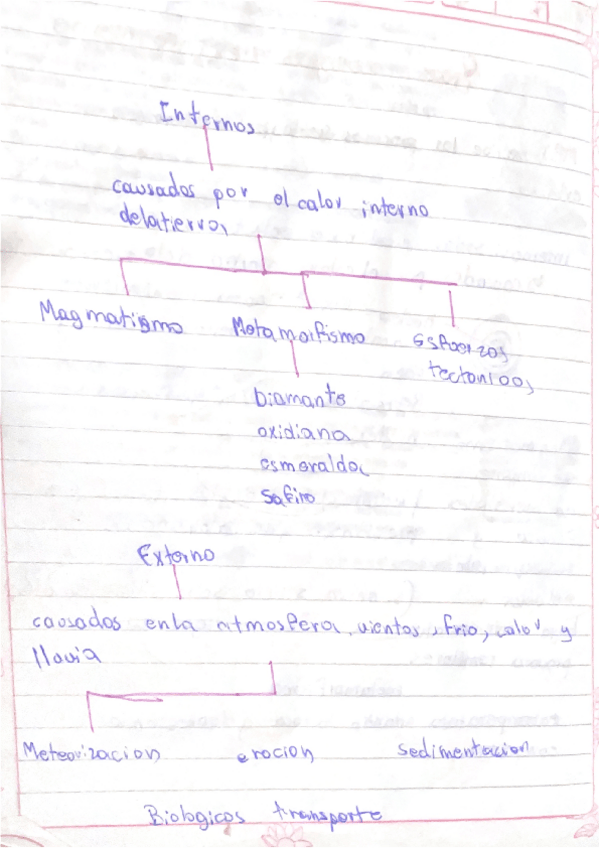 Internos
causados por el calor interno
delatierra,
Magmatismo Metamorfismo esfuerzos
tectonicos
Diamante
oxidiana
esmeralda
Safiro
Externo
causados enla atmosfera, vientos, frio, calor y
lluvia
Meteorizacion erocion sedimentacion
Biologicos transporte